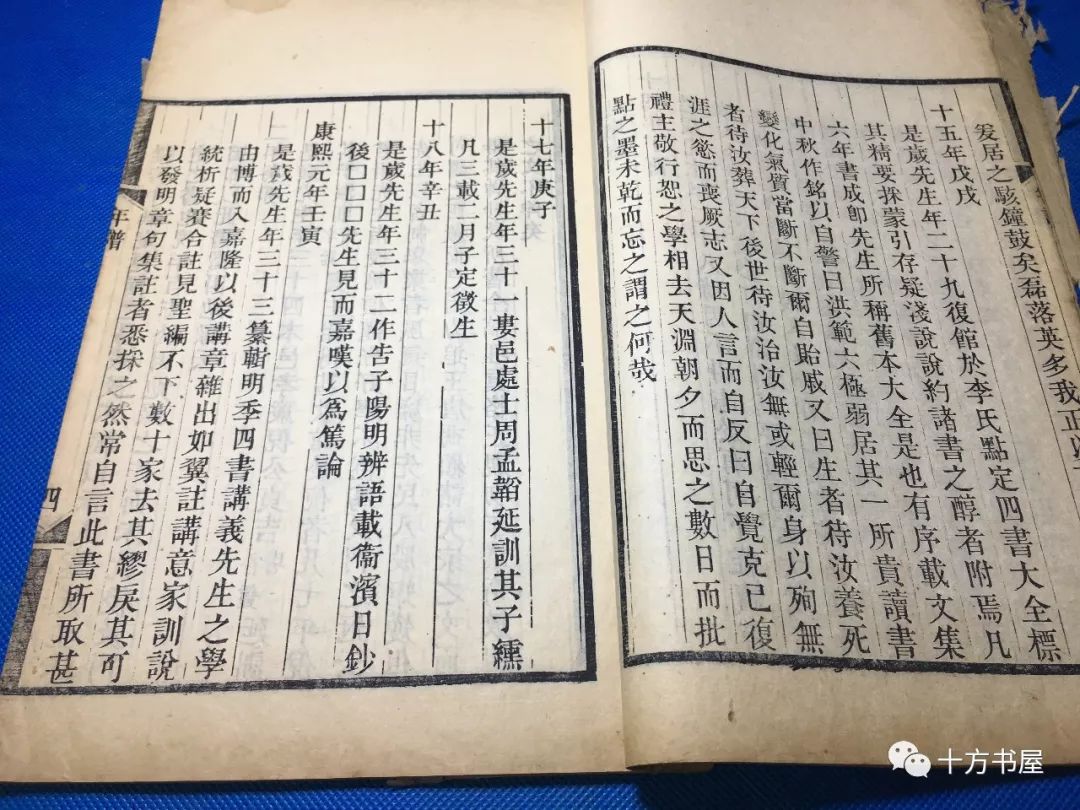 爰居之駭鐘鼓矣磊落英多我正以
十五年戊戌
是歲先生年二十九復館於李氏點定四書大全標
其精要採蒙引存疑淺說說約諸書之醇者附焉凡
六年書成卽先生所稱舊本大全是也有序載文集
中秋作銘以自警曰洪範六極弱居其一所貴讀書
變化氣質當斷不斷爾自貽戚又曰生者待汝養死
者待汝葬天下後世待汝治汝無或輕爾身以殉無
涯之慾而喪厥志又因人言而自反曰自覺克己復
禮主敬行恕之學相去天淵朝夕而思之數日而批
點之墨未乾而忘之謂之何哉
十七年庚子
是歲先生年三十一婁邑處士周孟韜延訓其子纁
凡三載二月子定徵生
十八年辛丑
是歲先生年三十二作告子陽明辨語載衞濱日鈔
後□□□先生見而嘉嘆以爲篤論
康熙元年壬寅
是歲先生年三十三纂輯明季四書講義先生之學
由博而入嘉隆以後講章雜出如翼註講意家訓說
統析疑襄合註見聖編不下數十家去其繆戾其可
以發明章句集註者悉採之然常自言此書所取甚
年譜
四
十方书屋